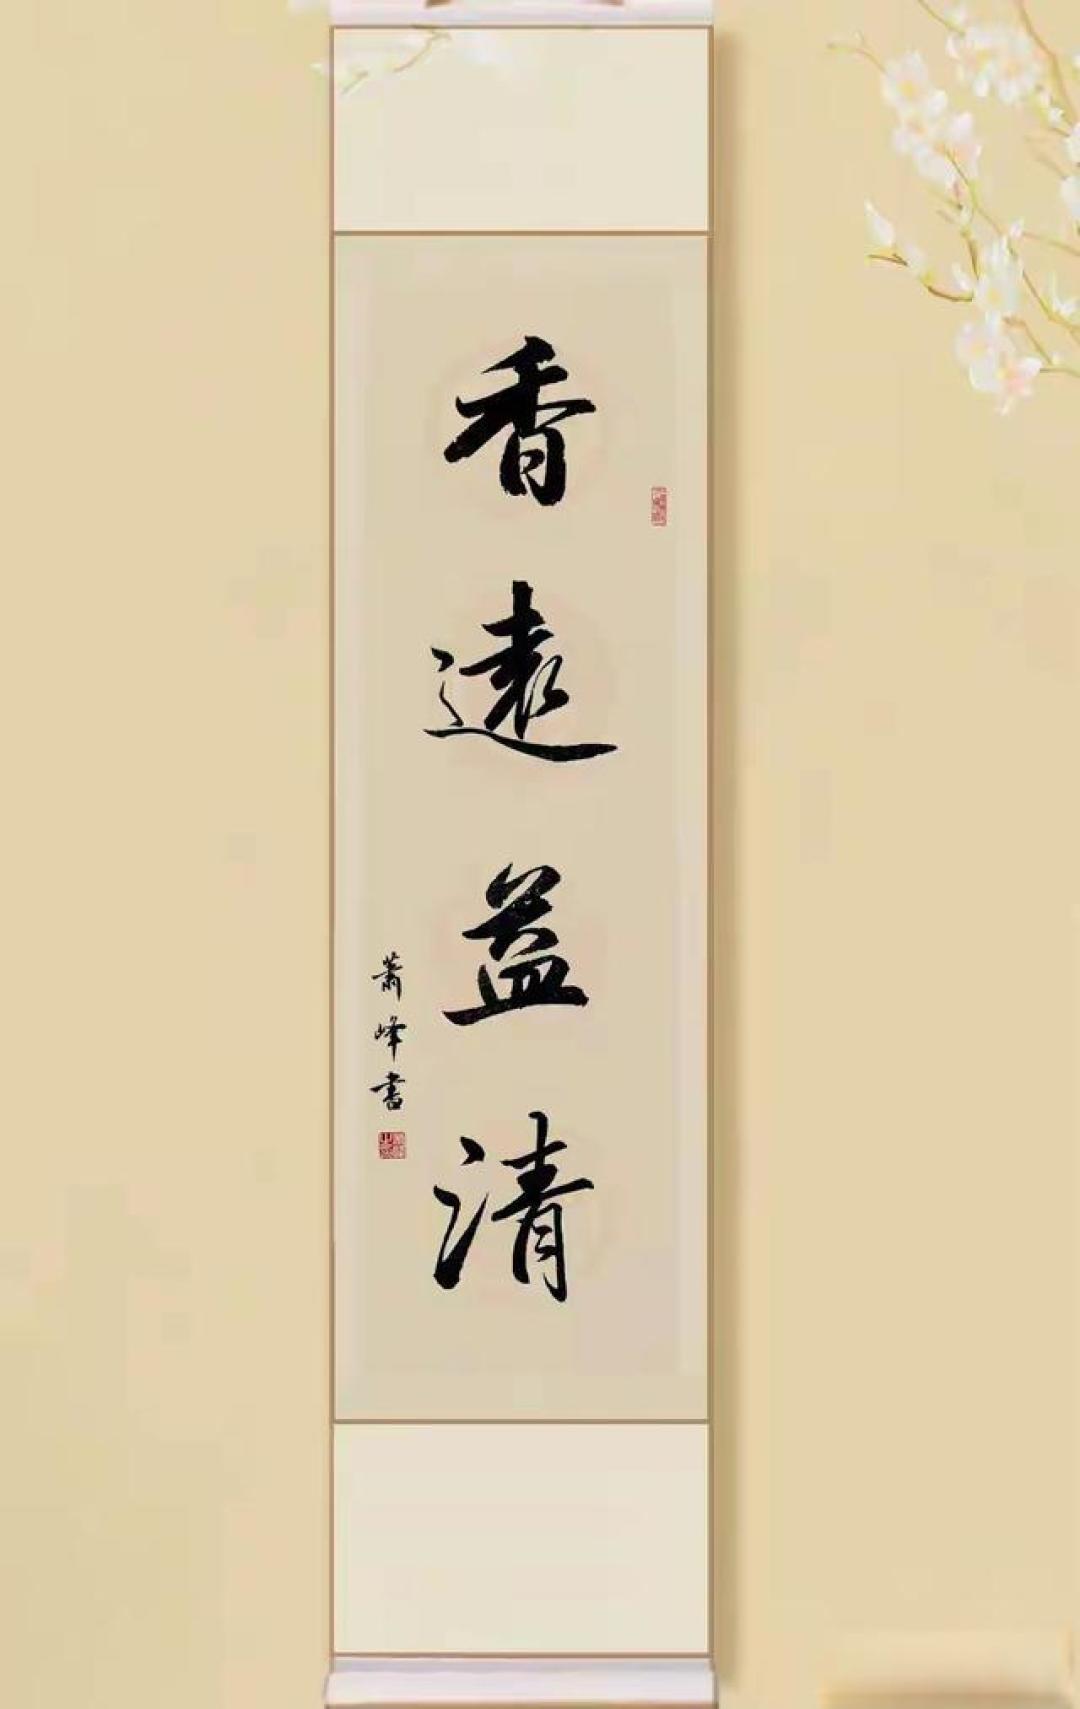 香遠益清
蕭峰書